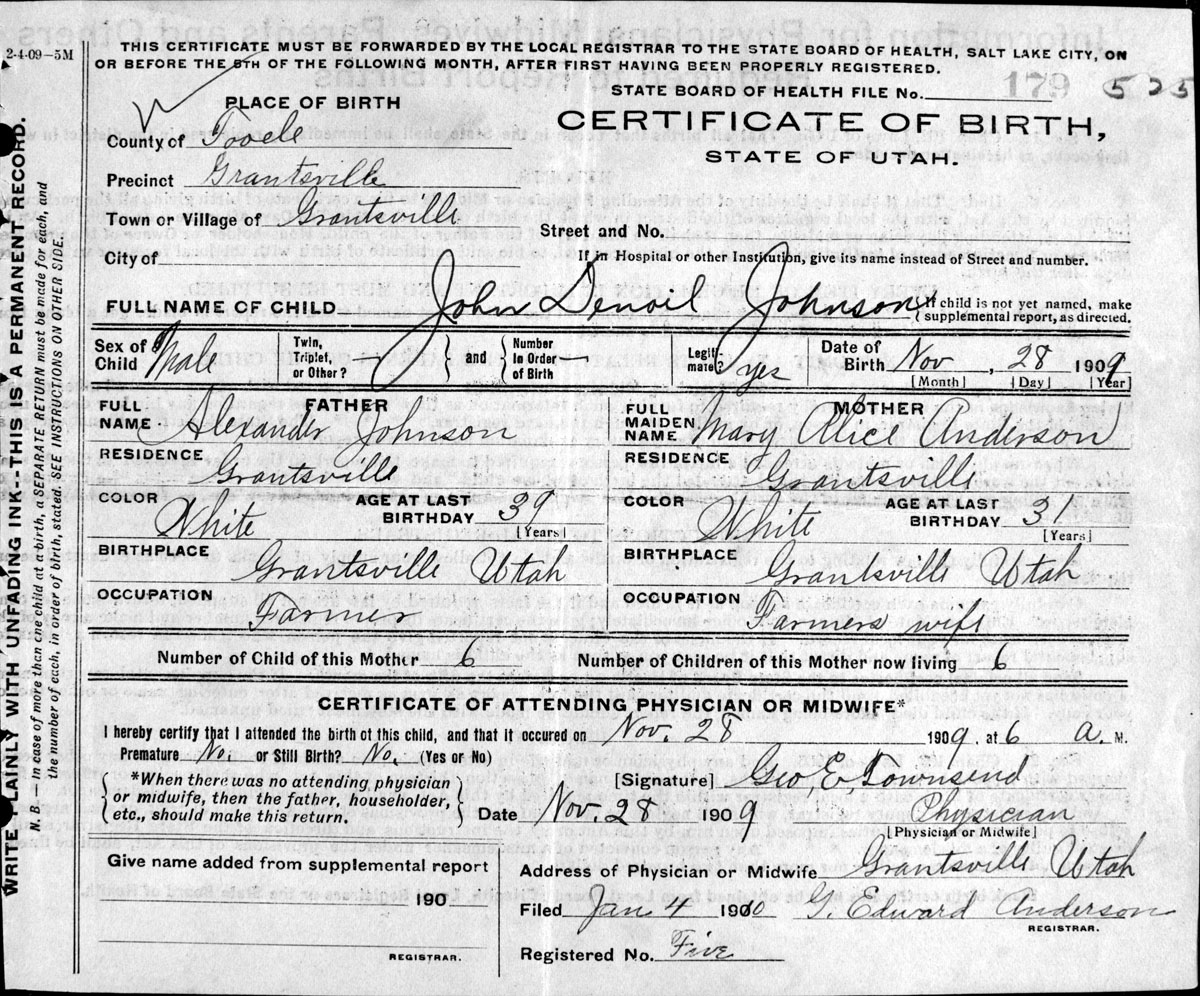 2-4-09—5M
THIS CERTIFICATE MUST BE FORWARDED BY THE LOCAL REGISTRAR TO THE STATE BOARD OF HEALTH, SALT LAKE CITY, ON
OR BEFORE THE 5TH OF THE FOLLOWING MONTH, AFTER FIRST HAVING BEEN PROPERLY REGISTERED.
STATE BOARD OF HEALTH FILE No. 179 525
PLACE OF BIRTH
CERTIFICATE OF BIRTH,
STATE OF UTAH.
County of Tooele
Precinct Grantsville
Town or Village of Grantsville
Street and No.
City of
If in Hospital or other Institution, give its name instead of Street and number.
FULL NAME OF CHILD John Denoil Johnson { If child is not yet named, make supplemental report, as directed.
Sex of Child Male
Twin, Triplet, or Other? } and { Number in Order of Birth —
Legitimate? yes
Date of Birth Nov, 28 1909
[Month] [Day] [Year]
FATHER
FULL NAME Alexander Johnson
RESIDENCE Grantsville
COLOR White AGE AT LAST BIRTHDAY 39 [Years]
BIRTHPLACE Grantsville Utah
OCCUPATION Farmer
MOTHER
FULL MAIDEN NAME Mary Alice Anderson
RESIDENCE Grantsville
COLOR White AGE AT LAST BIRTHDAY 31 [Years]
BIRTHPLACE Grantsville Utah
OCCUPATION Farmers wife
Number of Child of this Mother 6 Number of Children of this Mother now living 6
CERTIFICATE OF ATTENDING PHYSICIAN OR MIDWIFE*
I hereby certify that I attended the birth of this child, and that it occured on Nov. 28 1909, at 6 a. M.
Premature No. or Still Birth? No. (Yes or No)
{ *When there was no attending physician or midwife, then the father, householder, etc., should make this return. }
[Signature] Geo, E, Townsend
Date Nov. 28 1909 Physician
[Physician or Midwife]
Give name added from supplemental report
190
REGISTRAR.
Address of Physician or Midwife Grantsville Utah
Filed Jan 4 1910 G. Edward Anderson
REGISTRAR.
Registered No. Five
WRITE PLAINLY WITH UNFADING INK—THIS IS A PERMANENT RECORD.
N. B.—In case of more than one child at birth, a SEPARATE RETURN must be made for each, and
the number of each, in order of birth, stated. SEE INSTRUCTIONS ON OTHER SIDE.